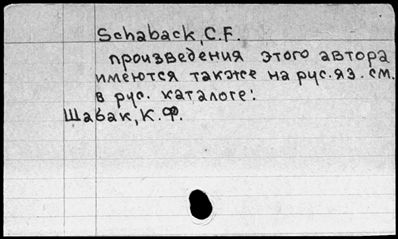 Schaback, C.F.
произведения этого автора
имеются также на рус.яз. см.
в рус. каталоге:
Шабак, К.Ф.